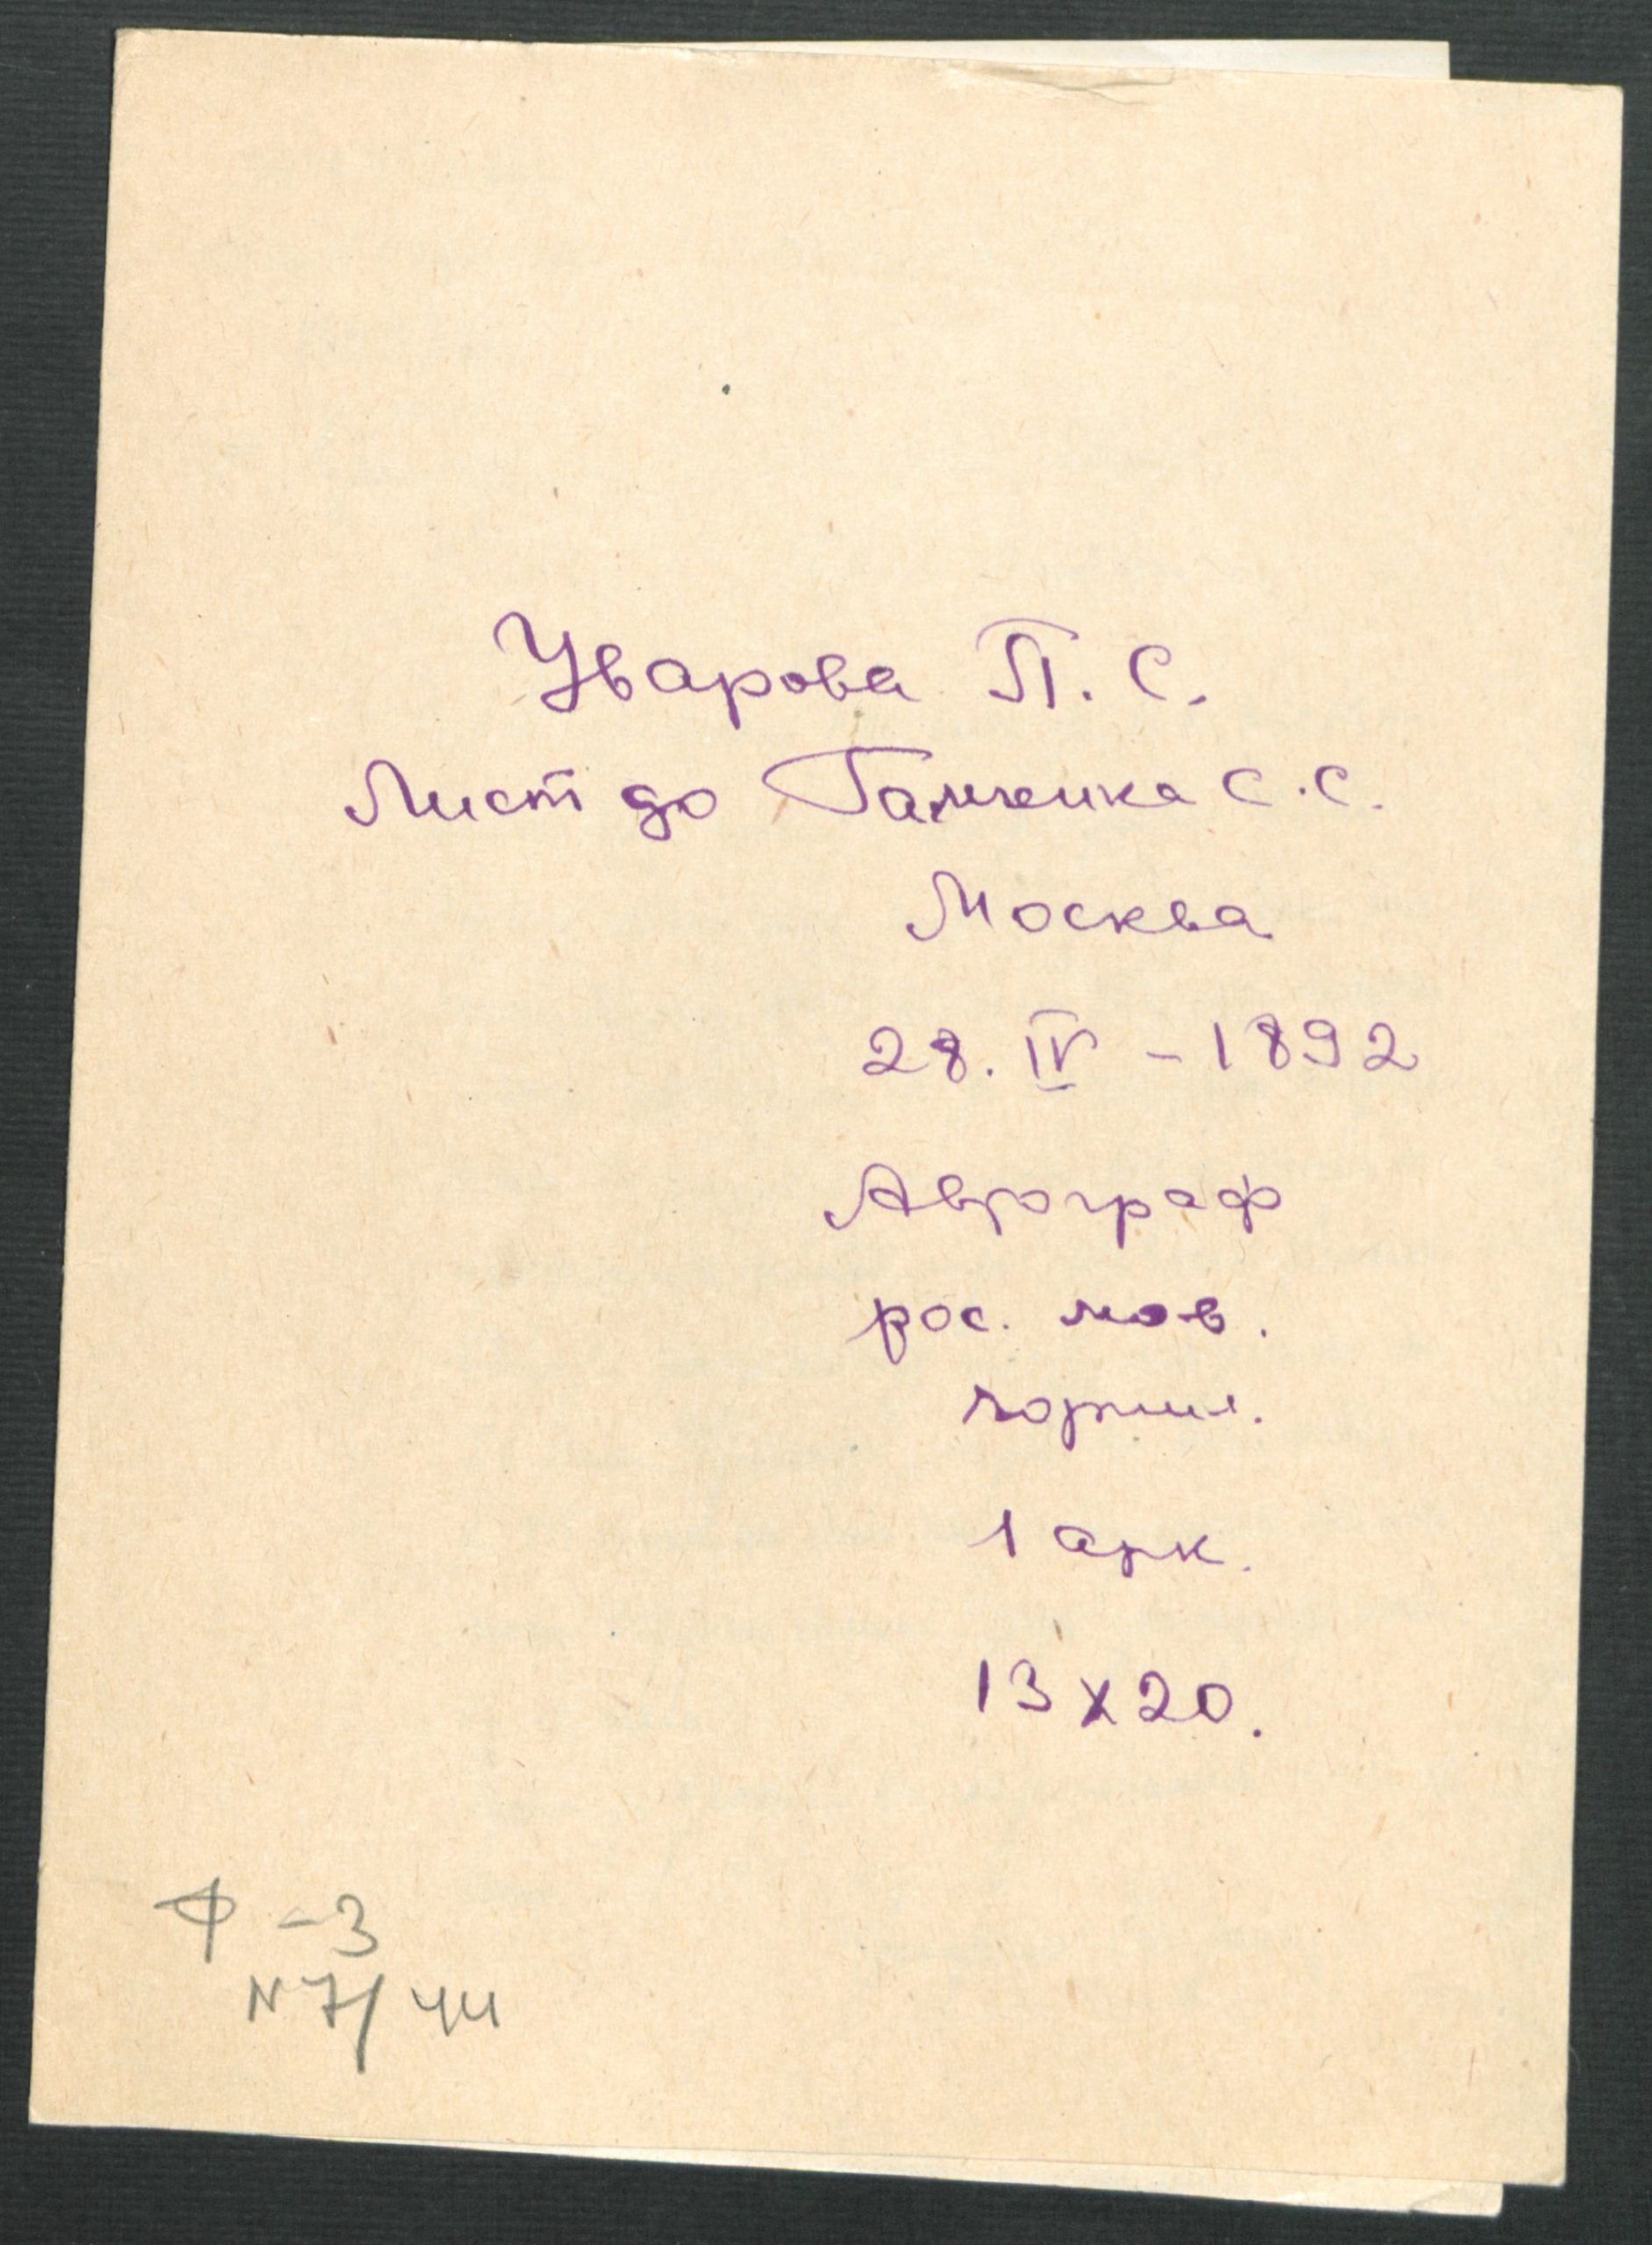 Уварова П. С.
Лист до Гамченка С. С.
Москва
28. IV - 1892
Автограф
рос. мов.
чорнил.
1 арк.
13 х 20.
Ф - 3
N 7/44